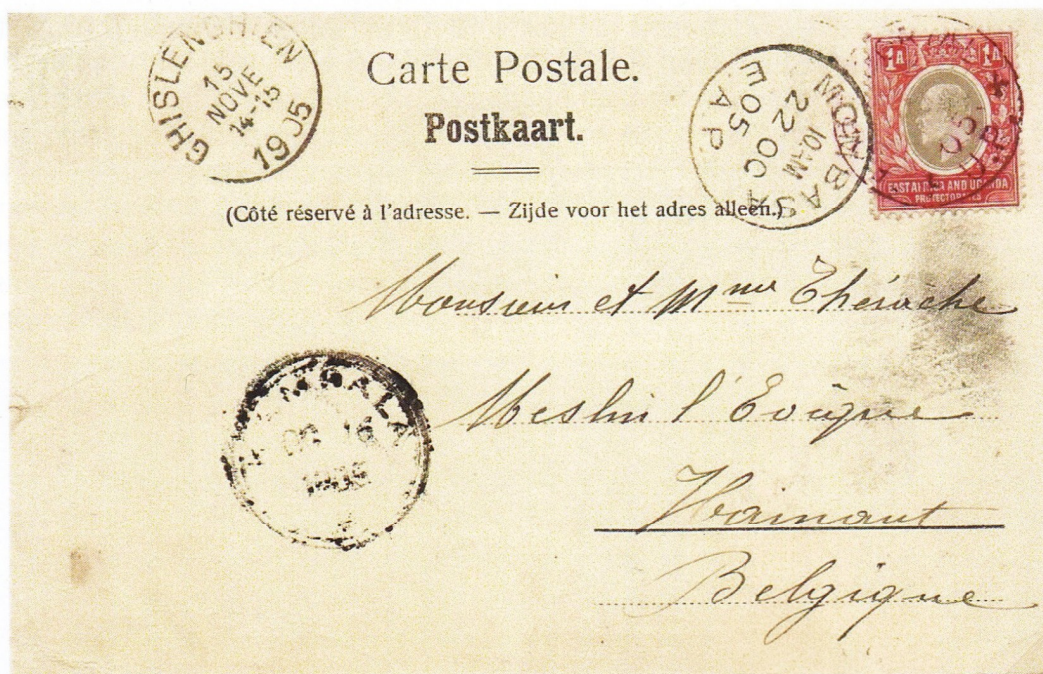 GHISLENGHIEN
15
NOVE
14-15
1905
Carte Postale.
Postkaart.
(Côté réservé à l'adresse. — Zijde voor het adres alleen.)
MOMBASA
10AM
22 OC
05
E.A.P.
1A 1A
EAST AFRICA AND UGANDA
PROTECTORATES
Monsieur et Mme Thérache
Meslin l'Evêque
Hainaut
Belgique
KAMPALA
OC 16
1905